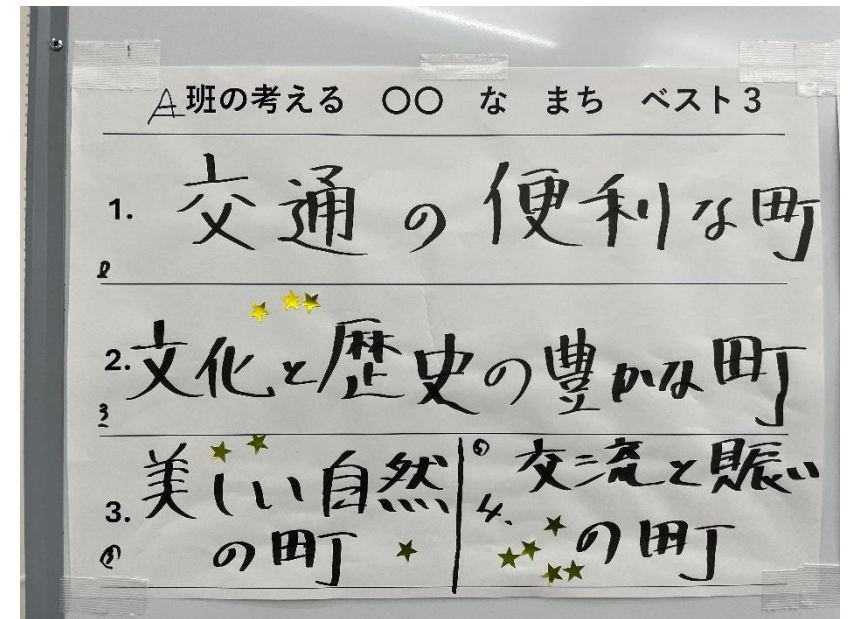 A班の考える ○○ な まち ベスト3
1. 交通の便利な町
2. 文化と歴史の豊かな町
3. 美しい自然
の町
4. 交流と賑い
の町